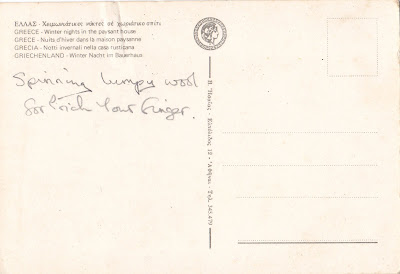 ΕΛΛΑΣ - Χειμωνιάτικες νύκτες σέ χωριάτικο σπίτι
GREECE - Winter nights in the paysant house
GRECE - Nuits d'hiver dans la maison paysanne
GRECIA - Notti invernali nella casa rusticana
GRIECHENLAND - Winter Nacht im Bauernhaus
Spinning lumpy wool
for Prick Your Finger.